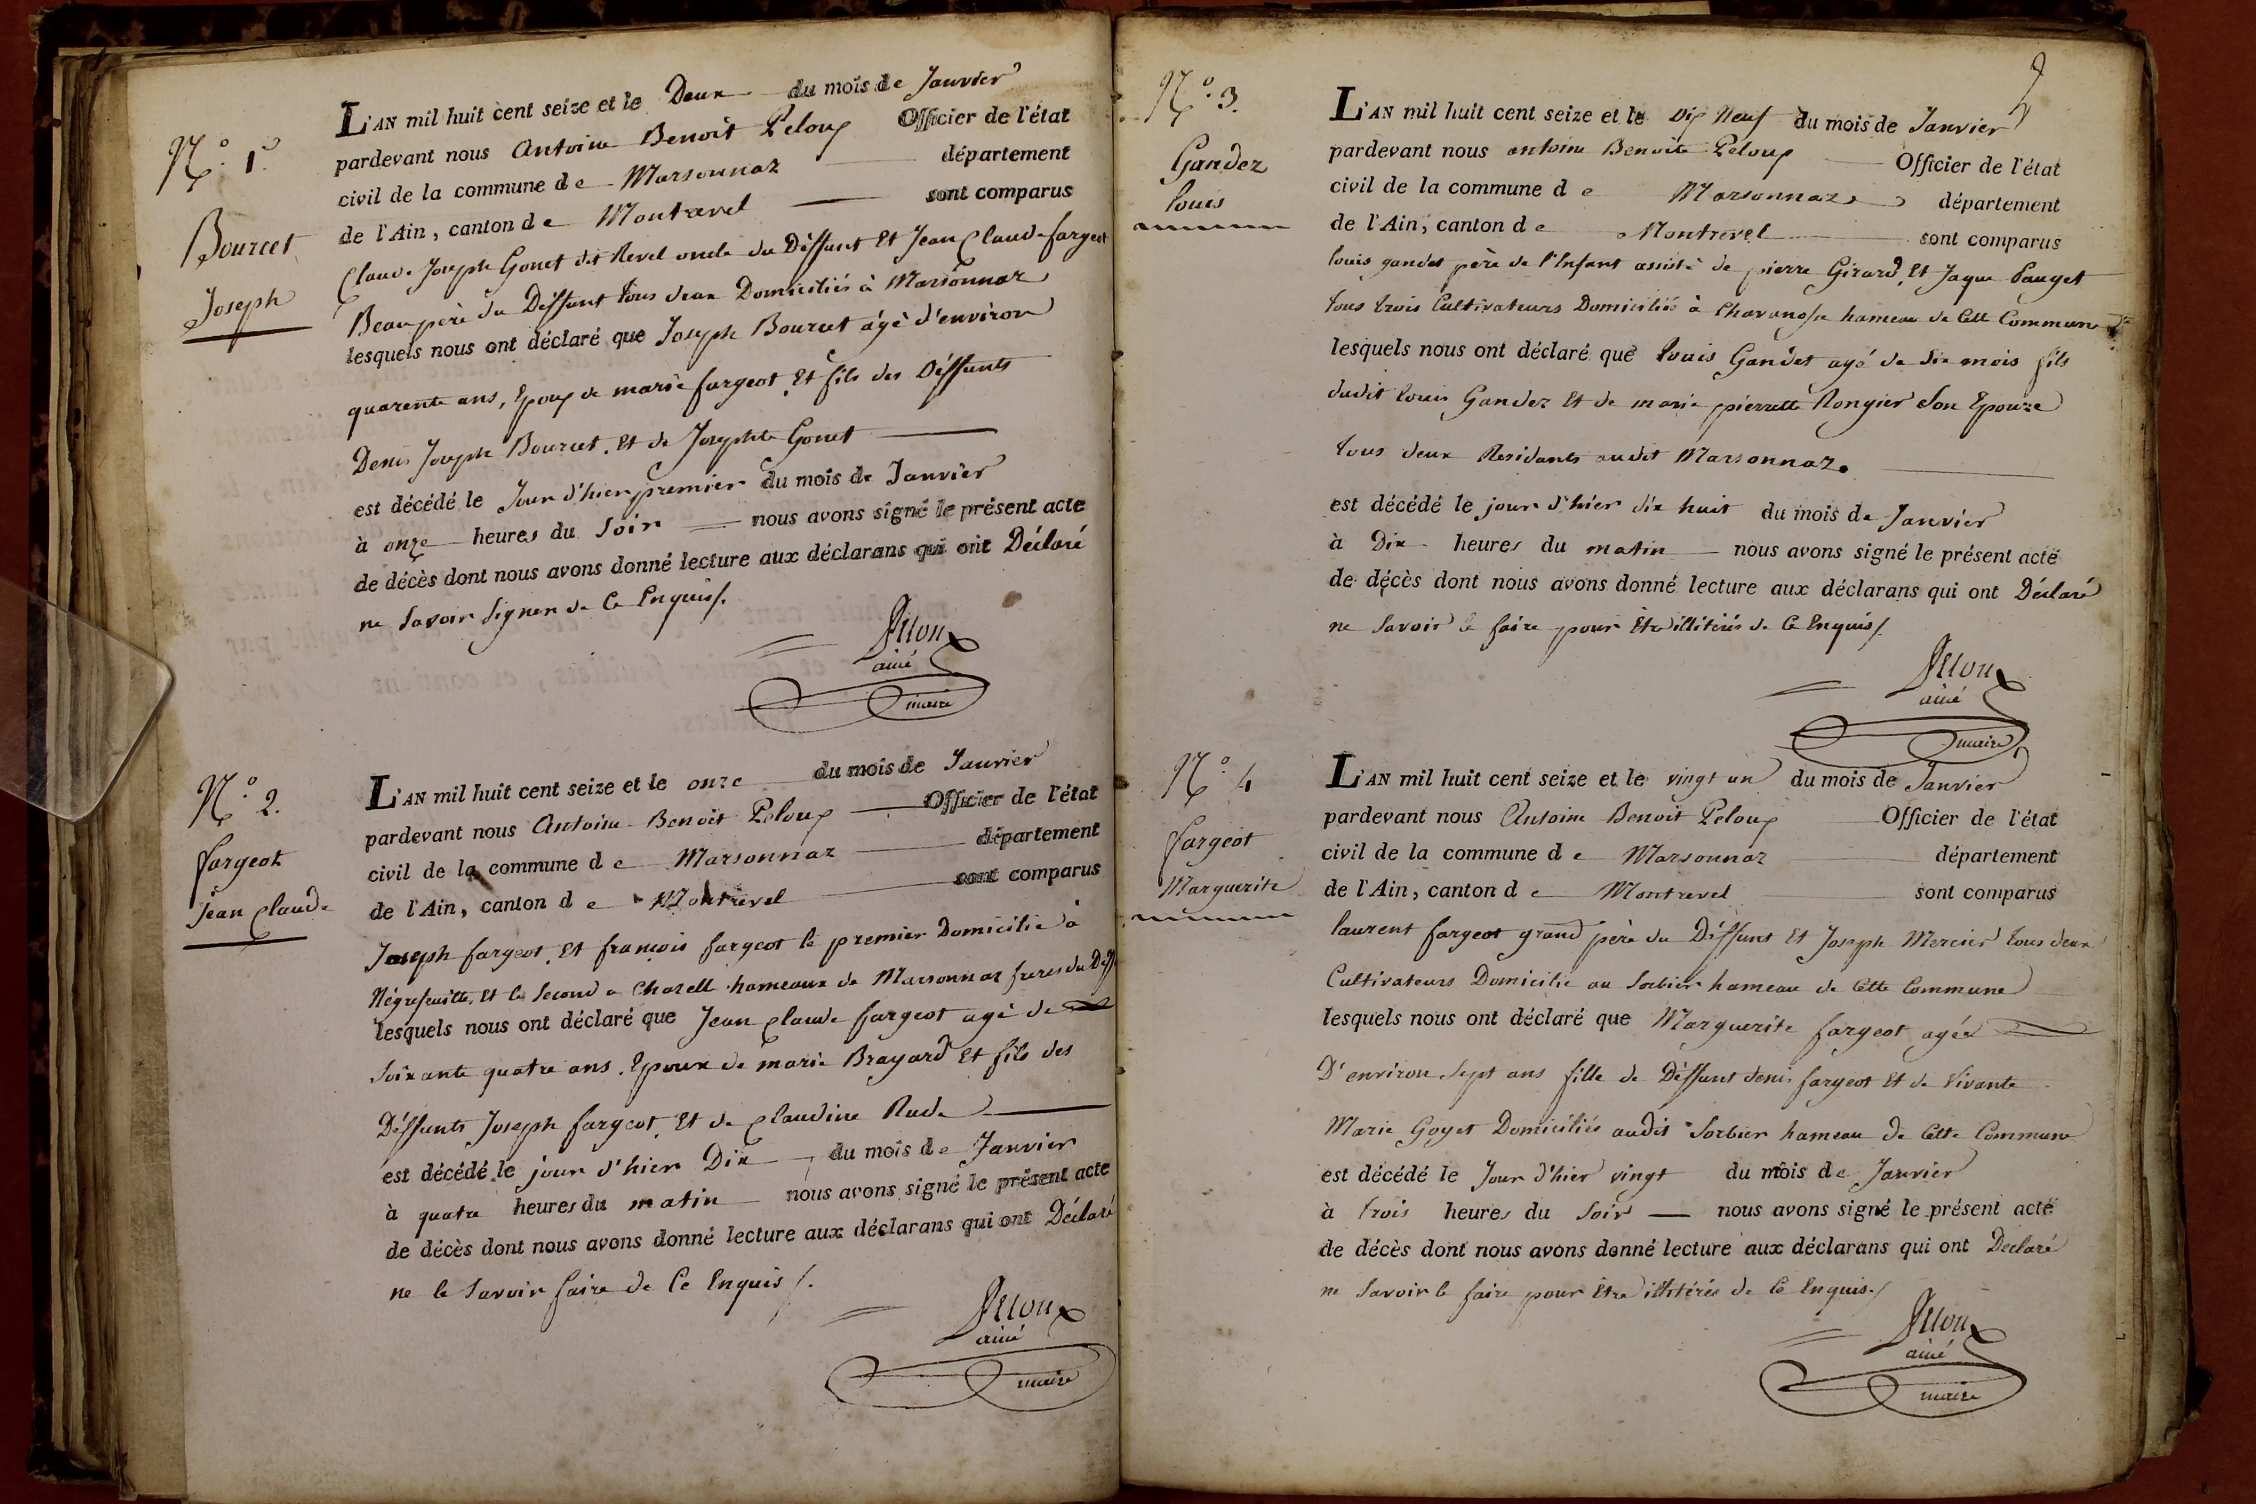 N.º 1.º
Bourcet
Joseph
L'AN mil huit cent seize et le Deux du mois de Janvier
pardevant nous Antoine Benoit Peloux Officier de l'état
civil de la commune de Marsonnaz département
de l'Ain, canton de Montrevel sont comparus
Claude Joseph Gonet dit Revel oncle du Déffunt Et Jean Claude fargeot
Beaupère du Déffunt tous deux Domiciliés à Marsonnaz
lesquels nous ont déclaré que Joseph Bourcet âgé d'environ
quarente ans, Epoux de marie fargeot Et fils des Déffunts
Denis Joseph Bourcet. Et de Josephte Gonet
est décédé le Jour d'hier premier du mois de Janvier
à onze heures du Soir nous avons signé le présent acte
de décès dont nous avons donné lecture aux déclarans qui ont Déclaré
ne Savoir Signer de Ce Enquis/.
Peloux
ainé
maire
N.º 2.
fargeot
Jean Claude
L'AN mil huit cent seize et le onze du mois de Janvier
pardevant nous Antoine Benoit Peloux Officier de l'état
civil de la commune de Marsonnaz département
de l'Ain, canton de Montrevel sont comparus
Joseph fargeot Et françois fargeot le premier Domicilié à
Négrefeuille, Et le Second a Chazell hameaux de Marsonnaz freres du Déff
lesquels nous ont déclaré que Jean Claude fargeot agé de
Soixante quatre ans. Epoux de marie Brayard Et fils des
Déffunts Joseph fargeot Et de Claudine Rude
est décédé le jour d'hier Dix du mois de Janvier
à quatre heures du matin nous avons signé le présent acte
de décès dont nous avons donné lecture aux déclarans qui ont Déclaré
ne le Savoir faire de Ce Enquis/.
Peloux
ainé
maire
2
N.º 3.
Gandez
louis
L'AN mil huit cent seize et le Dix Neuf du mois de Janvier
pardevant nous antoine Benoite Peloux Officier de l'état
civil de la commune de Marsonnaz département
de l'Ain, canton de Montrevel sont comparus
louis gandet père de l'Enfant assisté de pierre Girard, Et Jaque Pauget
tous trois Cultivateurs Domiciliés à Chavanosse hameau de Cette Commune
lesquels nous ont déclaré que louis Gandet agé de dix mois fils
dudit louis Gandez Et de marie pierrette Rongier Son Epouze
tous deux Residants audit Marsonnaz.
est décédé le jour d'hier dix huit du mois de Janvier
à Dix heures du matin nous avons signé le présent acte
de décès dont nous avons donné lecture aux déclarans qui ont Déclaré
ne Savoir le faire pour Etre illitérés de Ce Enquis/.
Peloux
ainé
maire
N.º 4
fargeot
Marguerite
L'AN mil huit cent seize et le vingt un du mois de Janvier
pardevant nous Antoine Benoit Peloux Officier de l'état
civil de la commune de Marsonnaz département
de l'Ain, canton de Montrevel sont comparus
laurent fargeot grand père du Déffunt Et Joseph Mercier tous deux
Cultivateurs Domicilié au Sorbier hameau de Cette Commune
lesquels nous ont déclaré que Marguerite fargeot agée
D'environ Sept ans fille de Déffunt denis fargeot Et de Vivante
Marie Goyet Domiciliés audit Sorbier hameau de Cette Commune
est décédé le Jour d'hier vingt du mois de Janvier
à trois heures du Soir nous avons signé le présent acte
de décès dont nous avons donné lecture aux déclarans qui ont Déclaré
ne Savoir le faire pour Etre illitérés de Ce Enquis./
Peloux
ainé
maire